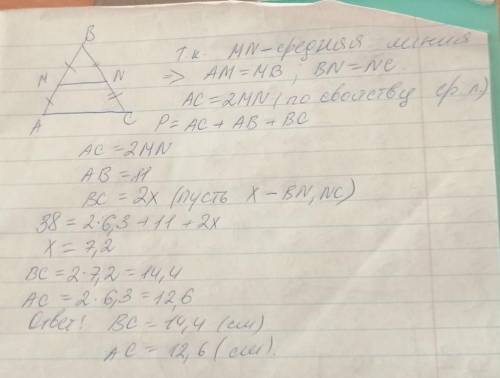 B
Т.к. MN - средняя линия
M N
=> AM = MB ; BN = NC
AC = 2MN (по свойству ср.л)
A C
P = AC + AB + BC
AC = 2MN
AB = 11
BC = 2x (пусть x - BN, NC)
38 = 2·6,3 + 11 + 2x
x = 7,2
BC = 2·7,2 = 14,4
AC = 2·6,3 = 12,6
Ответ: BC = 14,4 (см)
AC = 12,6 (см).